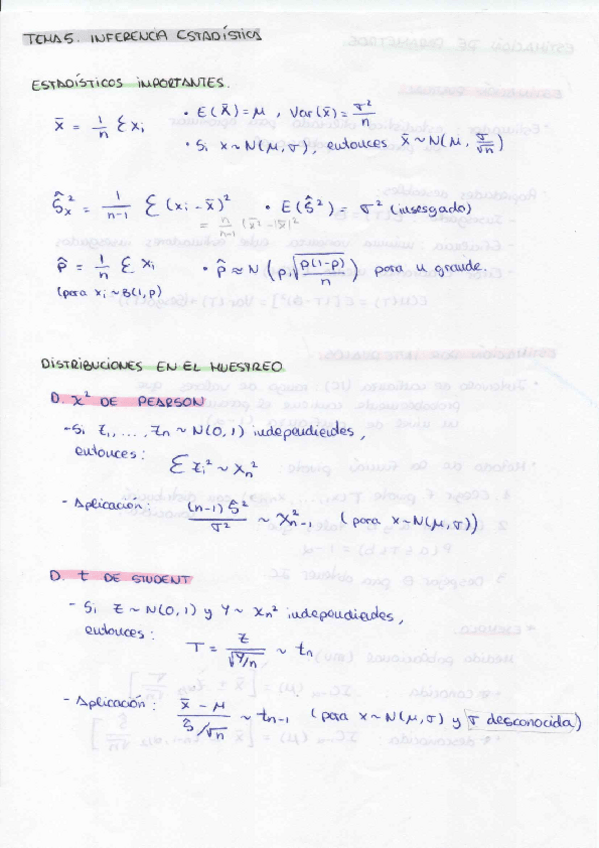 TEMA 5. INFERENCIA ESTADÍSTICA
ESTADÍSTICOS IMPORTANTES.
x̄ = 1/n Σ xi
• E(X̄) = μ , Var(x̄) = σ²/n
• Si x ~ N(μ, σ), entonces x̄ ~ N(μ, σ/√n)
Ŝx² = 1/(n-1) Σ (xi - x̄)² • E(Ŝ²) = σ² (insesgado)
p̂ = 1/n Σ xi • p̂ ≈ N(p, √(p(1-p)/n)) para n grande.
(para xi ~ B(1, p)
DISTRIBUCIONES EN EL MUESTREO
D. χ² DE PEARSON
- Si z1, ..., zn ~ N(0, 1) independientes,
entonces:
Σ zi² ~ χn²
- Aplicación: (n-1) Ŝ²/σ² ~ χ²n-1 (para x ~ N(μ, σ))
D. t DE STUDENT
- Si z ~ N(0, 1) y Y ~ χn² independientes,
entonces: T = z/√(Y/n) ~ tn
- Aplicación: (x̄ - μ)/(Ŝ/√n) ~ tn-1 (para x ~ N(μ, σ) y σ desconocida)